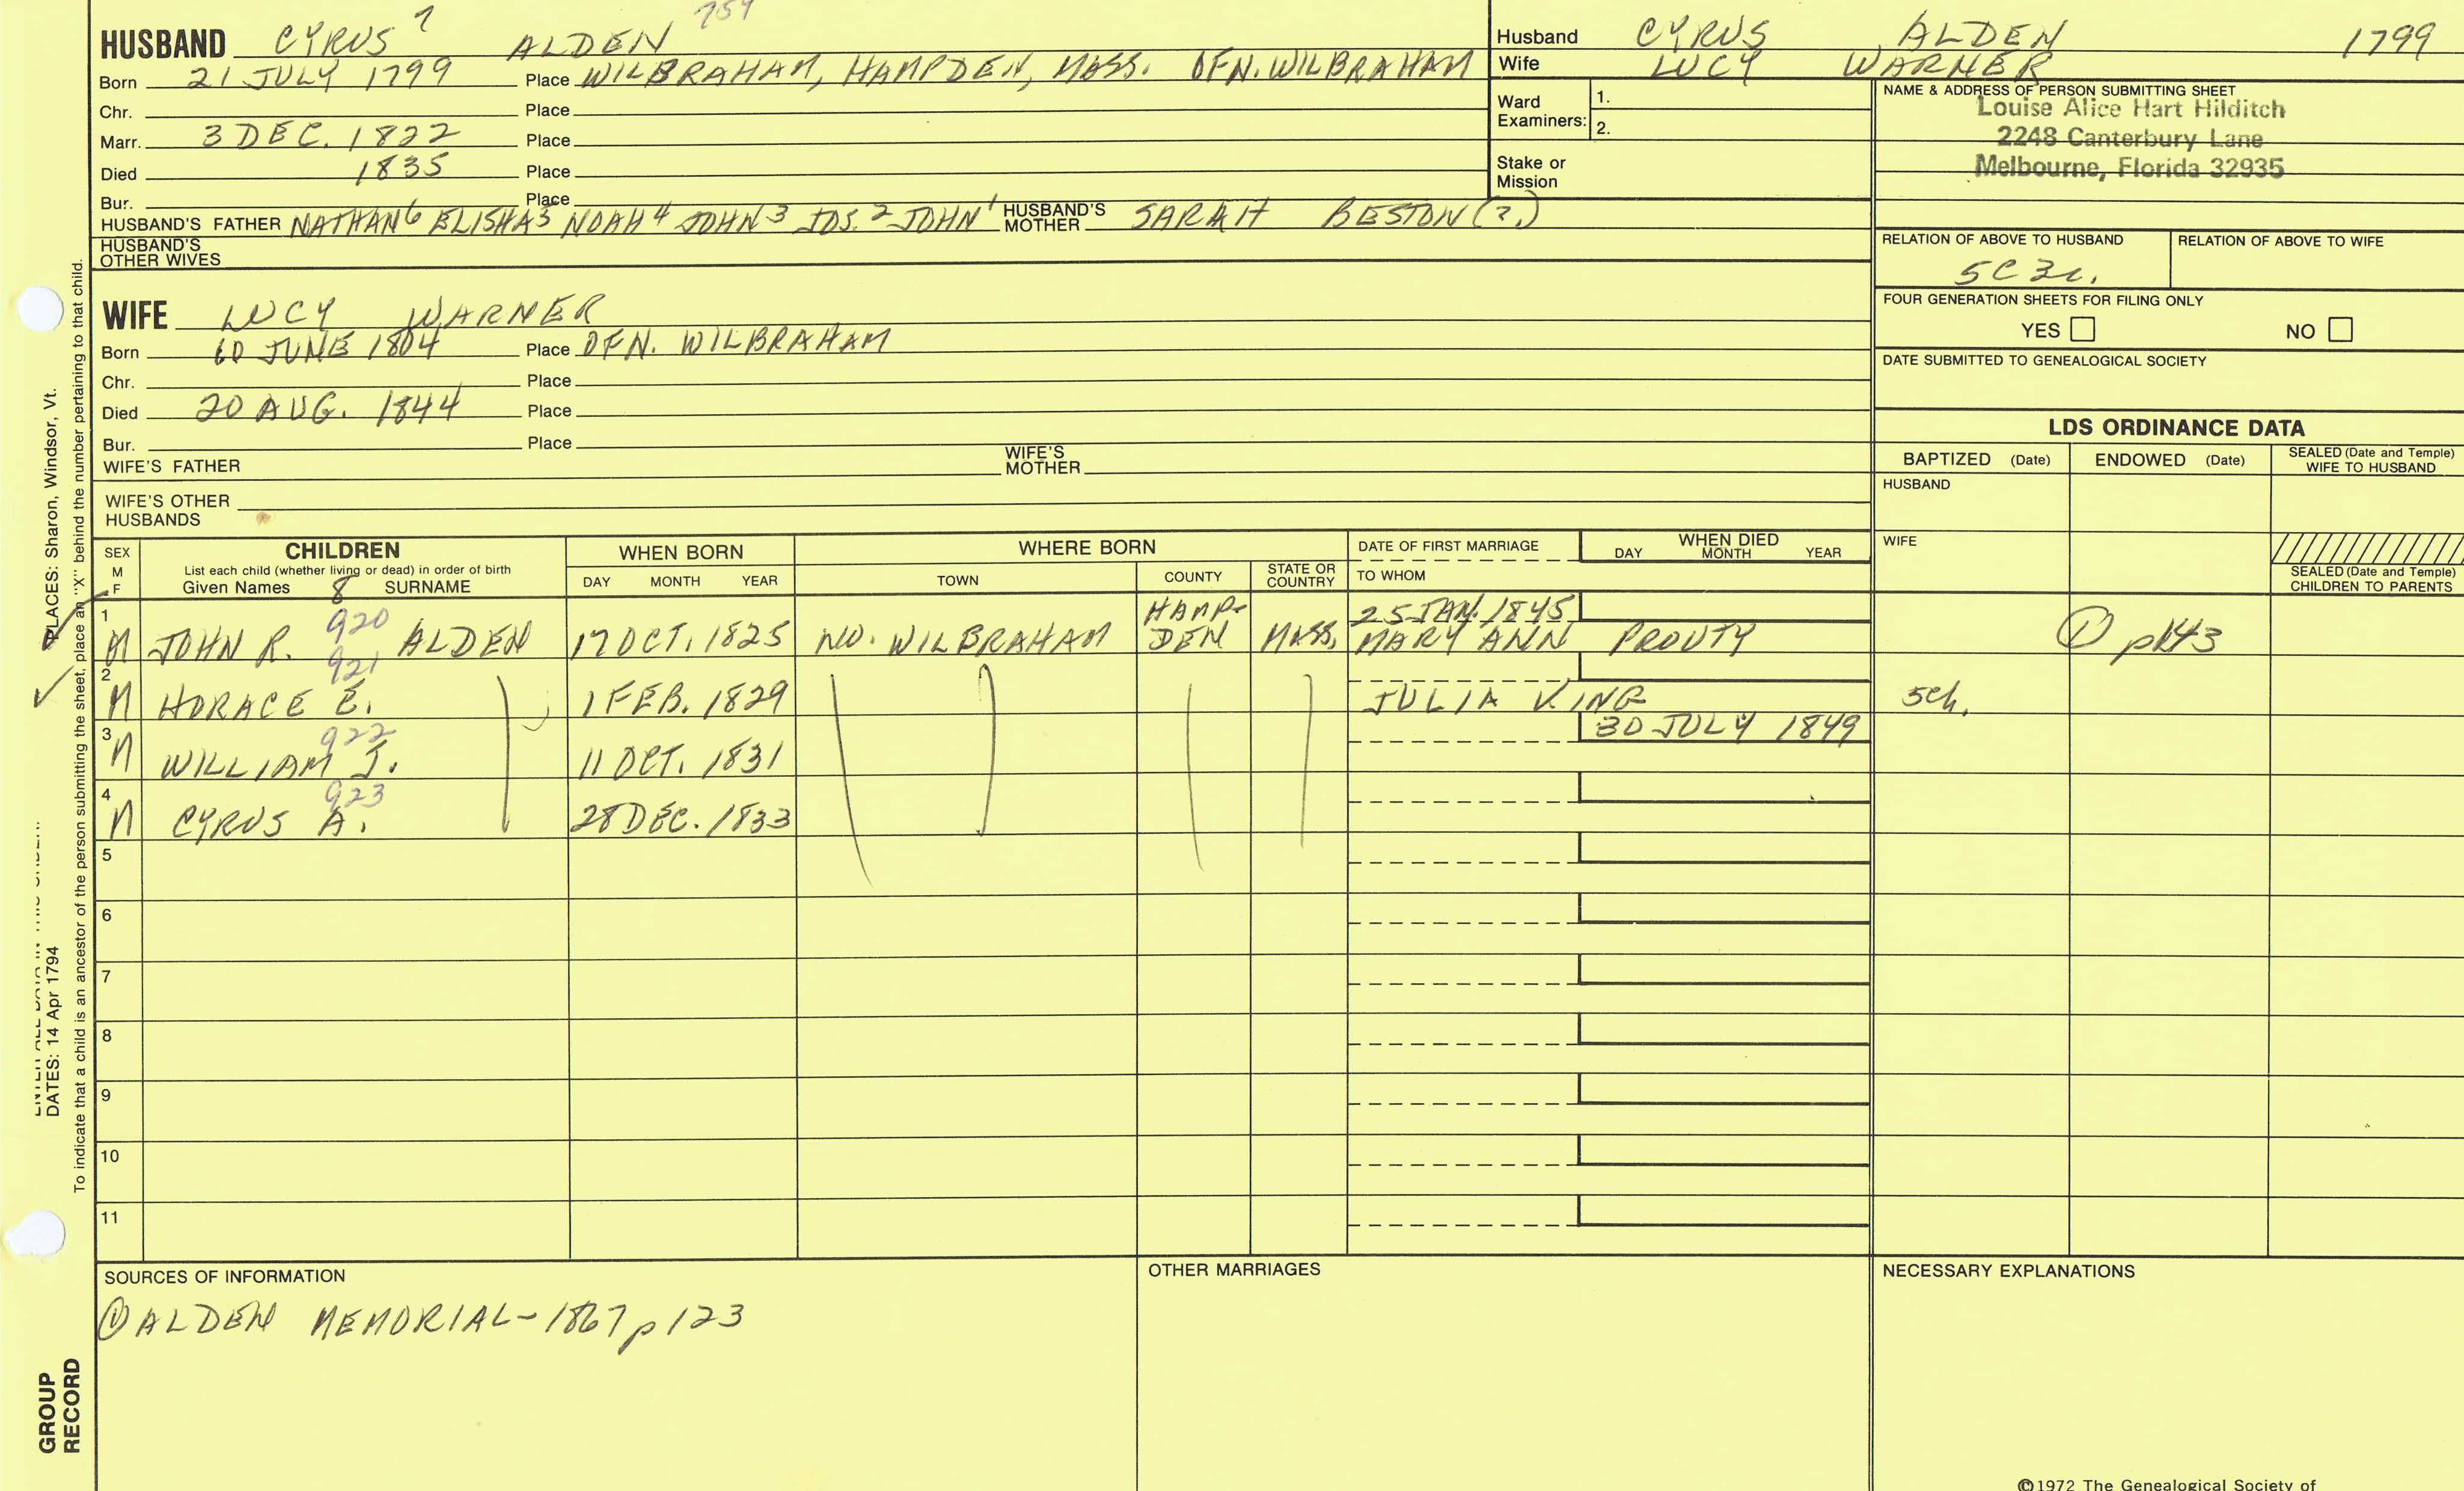 HUSBAND CYRUS 7 ALDEN 754
Born 21 JULY 1799 Place WILBRAHAM, HAMPDEN, MASS. OFN. WILBRAHAM
Chr. Place
Marr. 3 DEC. 1822 Place
Died 1835 Place
Bur. Place
HUSBAND'S FATHER NATHAN 6 ELISHA 5 NOAH 4 JOHN 3 JOS. 2 JOHN 1 HUSBAND'S MOTHER SARAH BESTON (?)
HUSBAND'S OTHER WIVES
WIFE LUCY WARNER
Born JUNE 1804 Place OFN. WILBRAHAM
Chr. Place
Died 20 AUG. 1844 Place
Bur. Place
WIFE'S FATHER WIFE'S MOTHER
WIFE'S OTHER HUSBANDS
Husband CYRUS ALDEN 1799
Wife LUCY WARNER
Ward Examiners: 1.
2.
Stake or Mission
NAME & ADDRESS OF PERSON SUBMITTING SHEET
Louise Alice Hart Hilditch
2248 Canterbury Lane
Melbourne, Florida 32935
RELATION OF ABOVE TO HUSBAND RELATION OF ABOVE TO WIFE
FOUR GENERATION SHEETS FOR FILING ONLY
YES NO
DATE SUBMITTED TO GENEALOGICAL SOCIETY
LDS ORDINANCE DATA
BAPTIZED (Date) ENDOWED (Date) SEALED (Date and Temple) WIFE TO HUSBAND
HUSBAND
WIFE
SEALED (Date and Temple) CHILDREN TO PARENTS
SEX M F CHILDREN WHEN BORN WHERE BORN DATE OF FIRST MARRIAGE WHEN DIED
List each child (whether living or dead) in order of birth DAY MONTH YEAR
Given Names 8 SURNAME DAY MONTH YEAR TOWN COUNTY STATE OR COUNTRY TO WHOM
1 920 HAMP- 25 JAN. 1845
M JOHN R. ALDEN 17 OCT. 1825 NO. WILBRAHAM DEN MASS. MARY ANN PROUTY 1
2 921
M HORACE E. 1 FEB. 1829 JULIA KING
3 922 30 JULY 1849
M WILLIAM J. 11 OCT. 1831
4 923
M CYRUS A. 28 DEC. 1833
5
6
7
8
9
10
11
SOURCES OF INFORMATION OTHER MARRIAGES NECESSARY EXPLANATIONS
① ALDEN MEMORIAL - 1867 p 123
©1972 The Genealogical Society of
PLACES: Sharon, Windsor, Vt.
DATES: 14 Apr 1794
To indicate that a child is an ancestor of the person submitting the sheet, place an "X" behind the number pertaining to that child.
GROUP
RECORD